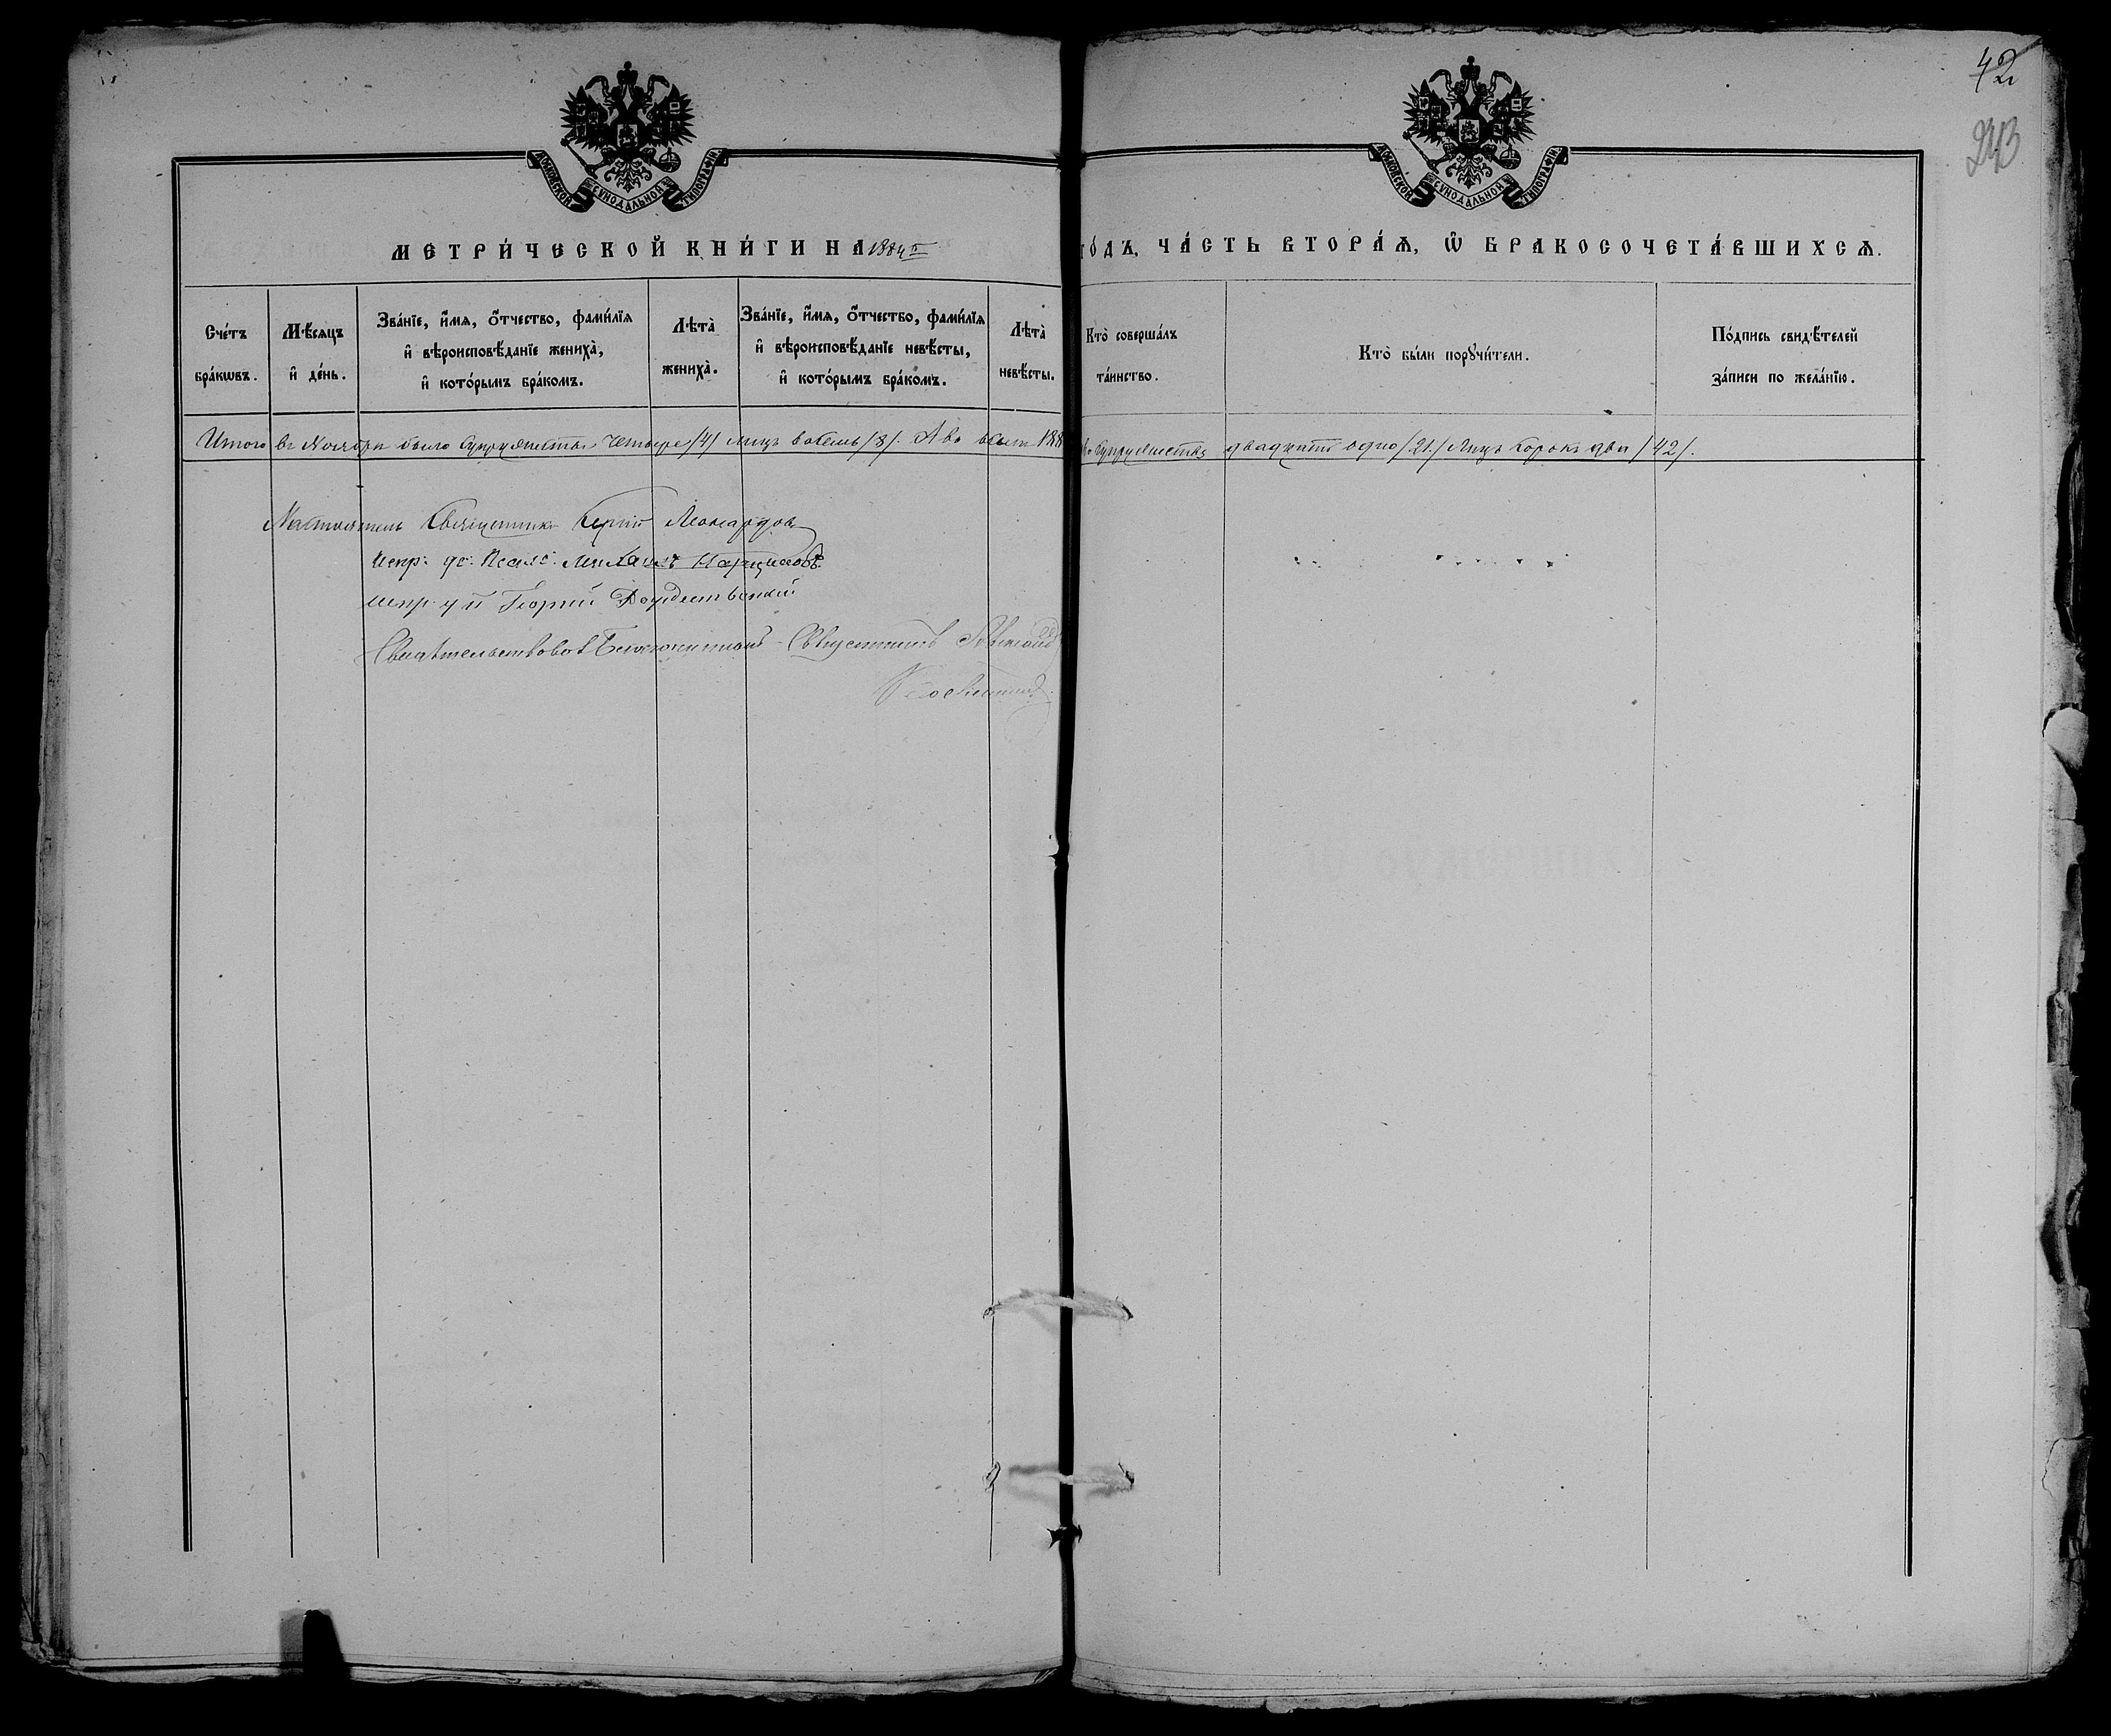 42
243
МОСКОВСКОЙ СѴНОДАЛЬНОЙ ТИПОГРАФІИ
МОСКОВСКОЙ СѴНОДАЛЬНОЙ ТИПОГРАФІИ
МЕТРИ́ЧЕСКОЙ КНИ́ГИ НА 1884 г. ГО́ДЪ, ЧА́СТЬ ВТОРА́Ѧ, Ѽ БРАКОСОЧЕТА́ВШИХСѦ.
Сче́тъ бра́кѡвъ.
Мѣ́сѧцъ и҆ де́нь.
Зва́нїе, и҆́мѧ, ѻ҆́тчество, фами́лїѧ и҆ вѣроисповѣ́данїе жениха̀, и҆ кото́рымъ бра́комъ.
Лѣта̀ жениха̀.
Зва́нїе, и҆́мѧ, ѻ҆́тчество, фами́лїѧ и҆ вѣроисповѣ́данїе невѣ́сты, и҆ кото́рымъ бра́комъ.
Лѣта̀ невѣ́сты.
Кто̀ соверша́лъ та́инство.
Кто̀ бы́ли порꙋчи́тели.
По́дпись свидѣ́телей за́писи по жела́нїю.
Итого въ Ноябрѣ было супружествъ четыре /4/ лицъ восемь /8/. А во всемъ 188 супружествъ двадцать одно /21/ лицъ сорокъ два /42/.
Настоятель Священникъ Сергій Леонардовъ
испр. до. Псалом. Михаилъ
испр. Георгій Рождественскій
Свидѣтельствовалъ Благочинный Священникъ